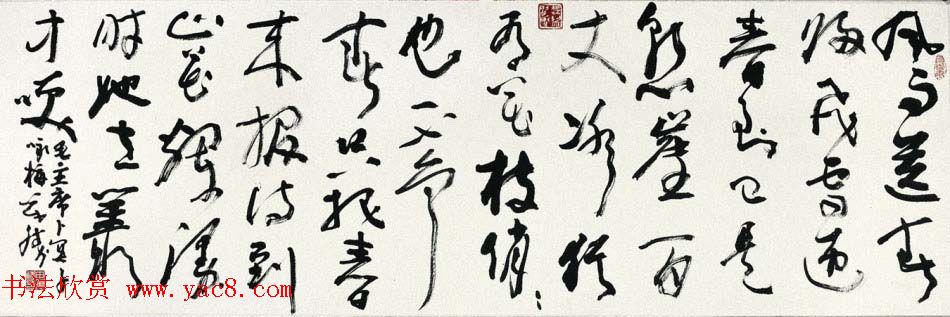 风雨送春
归飞雪迎
春到已是
悬崖百
丈冰犹
有花枝俏
俏也不争
春只把春
来报待到
山花烂漫
时她在丛
中笑
毛主席卜算子
咏梅
书法欣赏 www.yac8.com